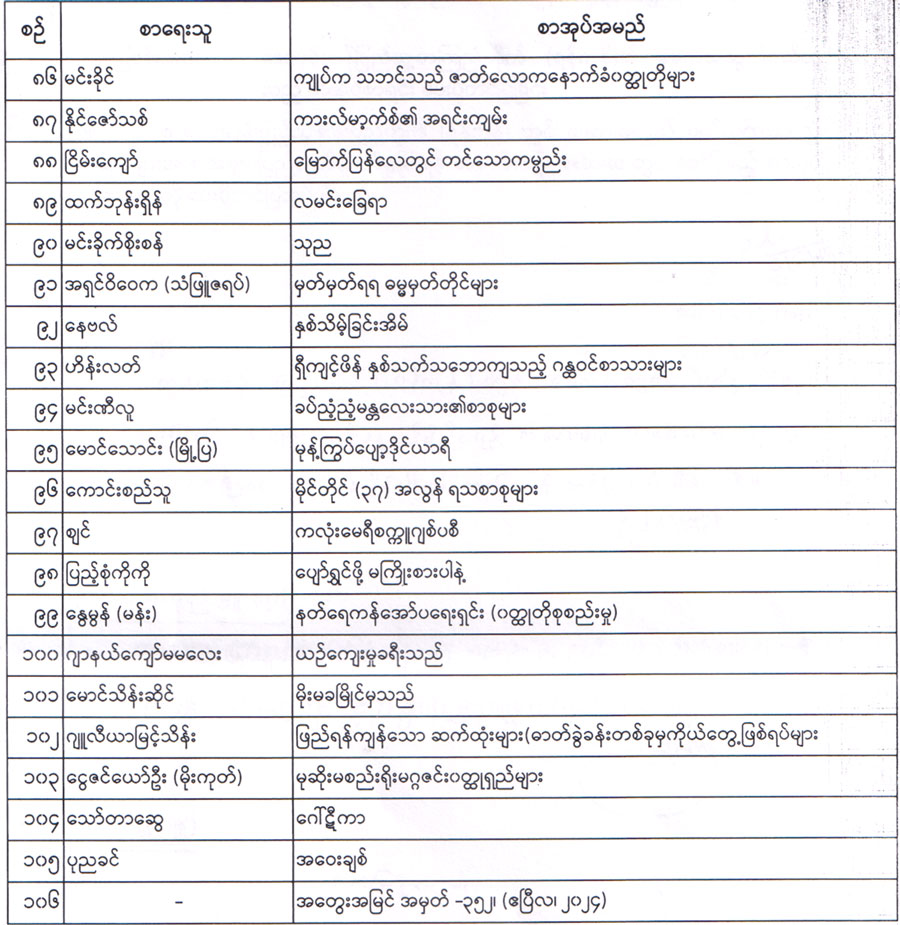 စဉ် စာရေးသူ စာအုပ်အမည်
၈၆ မင်းခိုင် ကျုပ်က သဘင်သည် ဇာတ်လောကနောက်ခံဝတ္ထုတိုများ
၈၇ နိုင်ဇော်သစ် ကားလ်မာ့က်စ်၏ အရင်းကျမ်း
၈၈ ငြိမ်းကျော် မြောက်ပြန်လေတွင် တင်သောကမ္ပည်း
၈၉ ထက်ဘုန်းရှိန် လမင်းခြေရာ
၉၀ မင်းခိုက်စိုးစန် သုည
၉၁ အရှင်ဝိဝေက (သံဖြူဇရပ်) မှတ်မှတ်ရရ ဓမ္မမှတ်တိုင်များ
၉၂ နေဗလ် နှစ်သိမ့်ခြင်းအိမ်
၉၃ ဟိန်းလတ် ရှီကျင့်ဖိန် နှစ်သက်သဘောကျသည့် ဂန္ထဝင်စာသားများ
၉၄ မင်းဏီလူ ခပ်ညံ့ညံ့မန္တလေးသား၏စာစုများ
၉၅ မောင်သောင်း (မြို့ပြ) မုန့်ကြွပ်ပျော့ဒိုင်ယာရီ
၉၆ ကောင်းစည်သူ မိုင်တိုင် (၃၇) အလွန် ရသစာစုများ
၉၇ ဈာင် ကလုံးမေရီစက္ကူဂျစ်ပစီ
၉၈ ပြည့်စုံကိုကို ပျော်ရွှင်ဖို့ မကြိုးစားပါနဲ့
၉၉ နွေမွန် (မန်း) နတ်ရေကန်အော်ပရေးရှင်း (ဝတ္ထုတိုစုစည်းမှု)
၁၀၀ ဂျာနယ်ကျော်မမလေး ယဉ်ကျေးမှုခရီးသည်
၁၀၁ မောင်သိန်းဆိုင် မိုးမခမြိုင်မှသည်
၁၀၂ ဂျူလီယာမြင့်သိန်း ဖြည်ရန်ကျန်သော ဆက်ထုံးများ(ဓာတ်ခွဲခန်းတစ်ခုမှကိုယ်တွေ့ဖြစ်ရပ်များ
၁၀၃ ငွေဇင်ယော်ဦး (မိုးကုတ်) မုဆိုးမစည်းရိုးမဂ္ဂဇင်းဝတ္ထုရှည်များ
၁၀၄ သော်တာဆွေ ဂေါ်ဋီကာ
၁၀၅ ပုညခင် အဝေးချစ်
၁၀၆ – အတွေးအမြင် အမှတ် –၃၅၂၊ (ဧပြီလ၊ ၂၀၂၄)